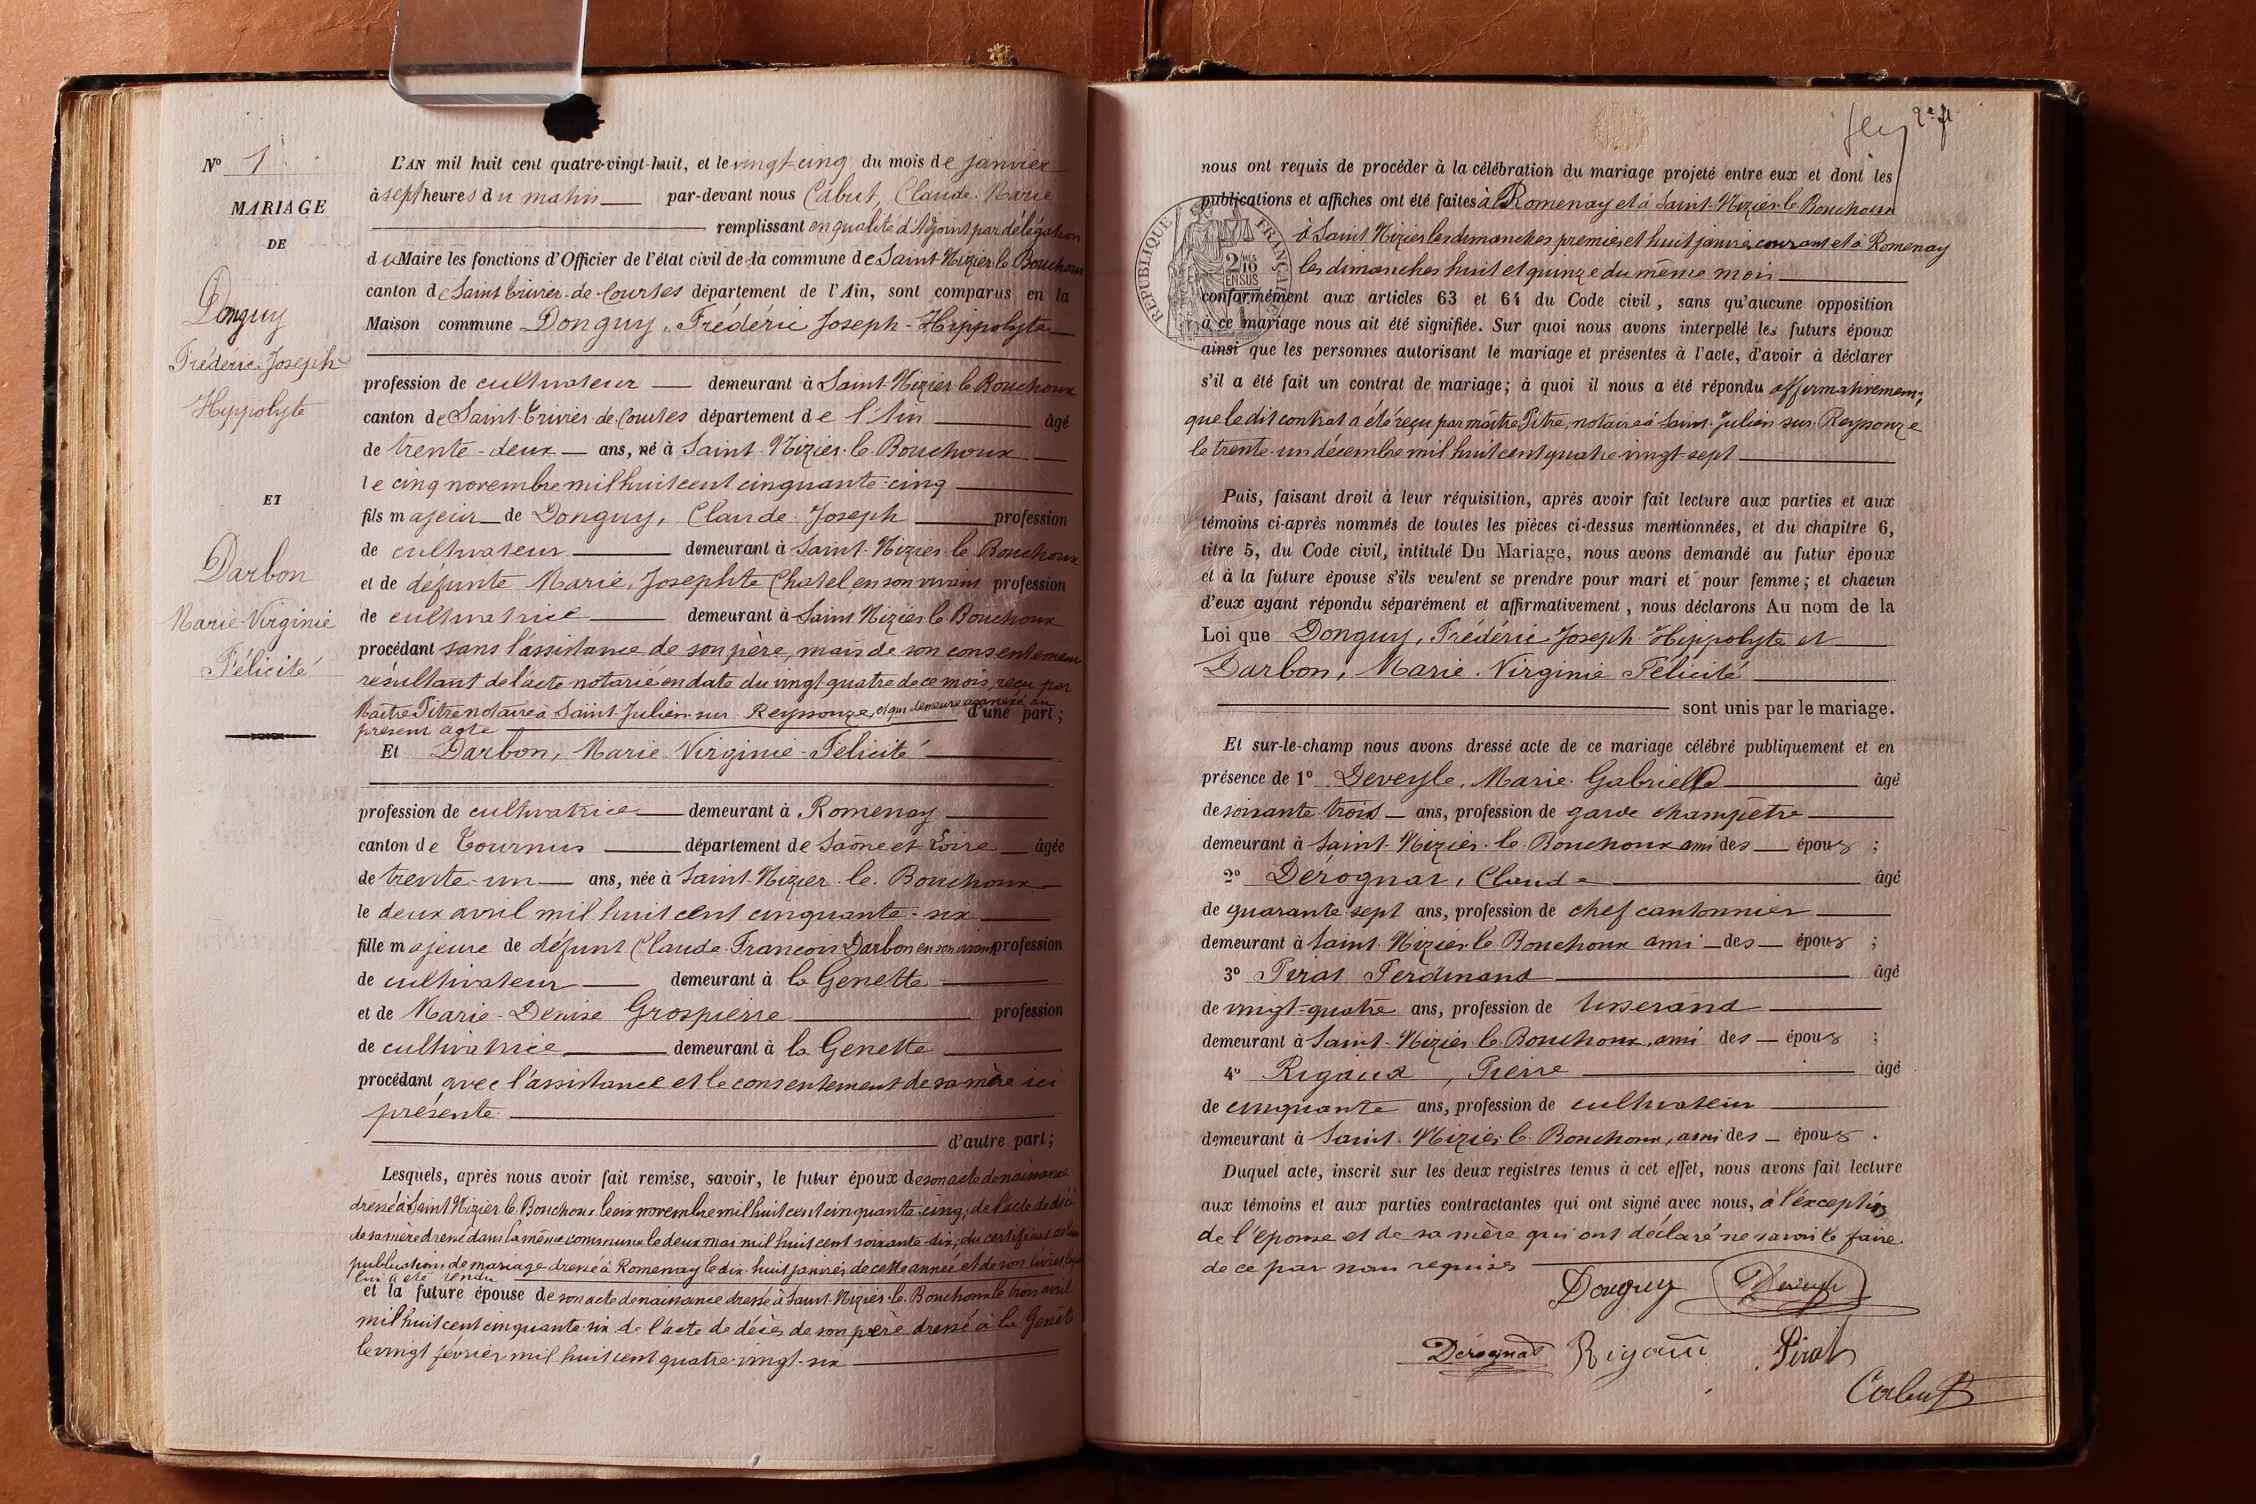 N° 1
MARIAGE
DE
Donguy
Frédéric Joseph
Hippolyte
ET
Darbon
Marie Virginie
Félicité
L'AN mil huit cent quatre-vingt-huit, et le vingt-cinq du mois de janvier
à sept heures du matin par-devant nous Cabut, Claude Marie
remplissant en qualité d'Adjoint par délégation
du Maire les fonctions d'Officier de l'état civil de la commune de Saint-Nizier-le-Bouchoux
canton de Saint-Trivier-de-Courtes département de l'Ain, sont comparus en la
Maison commune Donguy, Frédéric Joseph-Hippolyte
profession de cultivateur demeurant à Saint-Nizier-le-Bouchoux
canton de Saint-Trivier-de-Courtes département de l'Ain âgé
de trente-deux ans, né à Saint-Nizier-le-Bouchoux
le cinq novembre mil huit cent cinquante-cinq
fils majeur de Donguy, Claude Joseph profession
de cultivateur demeurant à Saint-Nizier-le-Bouchoux
et de défunte Marie, Josephte Chatel en son vivant profession
de cultivatrice demeurant à Saint Nizier-le-Bouchoux
procédant sans l'assistance de son père, mais de son consentement
résultant de l'acte notarié en date du vingt quatre de ce mois, reçu par
Maître Pitre notaire à Saint Julien-sur-Reyssouze, et qui demeure annexé au
présent acte d'une part;
Et Darbon, Marie Virginie-Félicité
profession de cultivatrice demeurant à Romenay
canton de Tournus département de Saône-et-Loire âgée
de trente-un ans, née à Saint-Nizier-le-Bouchoux
le deux avril mil huit cent cinquante-six
fille majeure de défunt Claude-François Darbon en son vivant profession
de cultivateur demeurant à la Genette
et de Marie-Denise Grospierre profession
de cultivatrice demeurant à la Genette
procédant avec l'assistance et le consentement de sa mère ici
présente
d'autre part;
Lesquels, après nous avoir fait remise, savoir, le futur époux de son acte de naissance
dressé à Saint Nizier-le-Bouchoux le six novembre mil huit cent cinquante-cinq, de l'acte de décès
de sa mère dressé dans la même commune le deux mai mil huit cent soixante-dix, du certificat
publications de mariage dressé à Romenay le dix-huit janvier de cette année et de son livret
lui a été rendu
et la future épouse de son acte de naissance dressé à Saint-Nizier-le-Bouchoux le trois avril
mil huit cent cinquante-six de l'acte de décès de son père dressé à la Genête
le vingt février mil huit cent quatre-vingt-six
2e f
nous ont requis de procéder à la célébration du mariage projeté entre eux et dont les
publications et affiches ont été faites à Romenay et à Saint-Nizier-le-Bouchoux
à Saint Nizier les dimanches premier et huit janvier courant et à Romenay
les dimanches huit et quinze du même mois
RÉPUBLIQUE FRANÇAISE
2/10 EN SUS
conformément aux articles 63 et 64 du Code civil, sans qu'aucune opposition
à ce mariage nous ait été signifiée. Sur quoi nous avons interpellé les futurs époux
ainsi que les personnes autorisant le mariage et présentes à l'acte, d'avoir à déclarer
s'il a été fait un contrat de mariage; à quoi il nous a été répondu affirmativement,
que le dit contrat a été reçu par maître Pitre, notaire à Saint-Julien-sur-Reyssouze
le trente-un décembre mil huit cent quatre vingt-sept
Puis, faisant droit à leur réquisition, après avoir fait lecture aux parties et aux
témoins ci-après nommés de toutes les pièces ci-dessus mentionnées, et du chapitre 6,
titre 5, du Code civil, intitulé Du Mariage, nous avons demandé au futur époux
et à la future épouse s'ils veulent se prendre pour mari et pour femme; et chacun
d'eux ayant répondu séparément et affirmativement, nous déclarons Au nom de la
Loi que Donguy, Frédéric Joseph Hippolyte et
Darbon, Marie Virginie Félicité
sont unis par le mariage.
Et sur-le-champ nous avons dressé acte de ce mariage célébré publiquement et en
présence de 1° Deveyle, Marie Gabriel âgé
de soixante-trois ans, profession de garde champêtre
demeurant à Saint-Nizier-le-Bouchoux ami des époux ;
2° Dérognat, Claude âgé
de quarante-sept ans, profession de chef cantonnier
demeurant à Saint-Nizier-le-Bouchoux ami des époux ;
3° Pirat Ferdinand âgé
de vingt-quatre ans, profession de tisserand
demeurant à Saint-Nizier-le-Bouchoux, ami des époux ;
4° Rigaud, Pierre âgé
de cinquante ans, profession de cultivateur
demeurant à Saint-Nizier-le-Bouchoux, ami des époux.
Duquel acte, inscrit sur les deux registres tenus à cet effet, nous avons fait lecture
aux témoins et aux parties contractantes qui ont signé avec nous, à l'exception
de l'épouse et de sa mère qui ont déclaré ne savoir le faire
de ce par nous requises
Donguy Deveyle
Dérognat Rigaud Pirat
Cabut